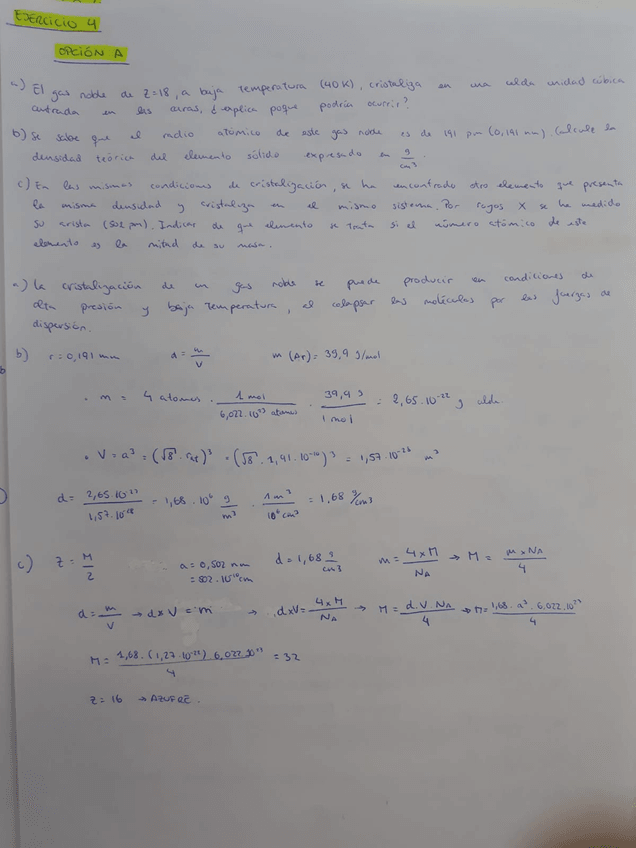 EJERCICIO 4
OPCIÓN A
a) El gas noble de Z=18, a baja temperatura (40K), cristaliza en una celda unidad cúbica
centrada en las caras, ¿explica poque podría ocurrir?
b) Se sabe que el radio atómico de este gas noble es de 191 pm (0,191 nm). Calcule la
densidad teórica del elemento sólido expresado en g/cm³.
c) En las mismas condiciones de cristalización, se ha encontrado otro elemento que presenta
la misma densidad y cristaliza en el mismo sistema. Por rayos X se ha medido
su arista (502 pm). Indicar de que elemento se trata si el número atómico de este
elemento es la mitad de su masa.
a) La cristalización de un gas noble se puede producir en condiciones de
alta presión y baja temperatura, al colapsar las moléculas por las fuerzas de
dispersión.
b) r = 0,191 nm d = m/V m (Ar) = 39,9 g/mol
· m = 4 átomos · 1 mol/6,022·10²³ átomos · 39,9 g/1 mol = 2,65·10⁻²² g celda
· V = a³ = (√8 · r)³ = (√8 · 1,91·10⁻¹⁰)³ = 1,57·10⁻²⁸ m³
d = 2,65·10⁻²²/1,57·10⁻²⁸ = 1,68·10⁶ g/m³ · 1m³/10⁶cm³ = 1,68 g/cm3
c) Z = M/2 a = 0,502 nm d = 1,68 g/cm3 m = 4xM/NA → M = mxNA/4
= 502·10⁻¹⁰cm
d = m/V → dxV = m → dxV = 4xM/NA → M = d.V.NA/4 → M = 1,68·a³·6,022·10²³/4
M = 1,68·(1,27·10⁻²²) 6,022·10²³/4 = 32
Z = 16 → AZUFRE.